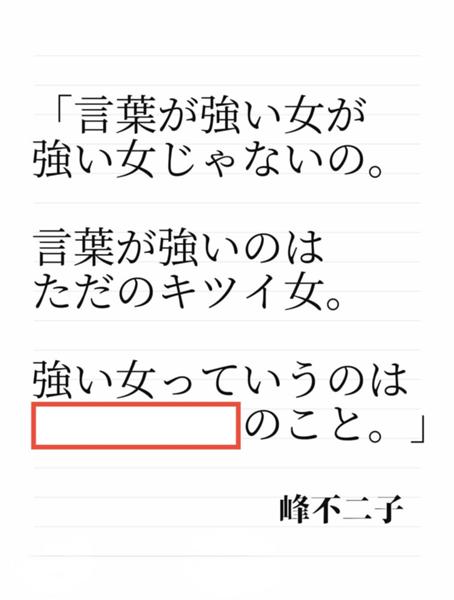 「言葉が強い女が
強い女じゃないの。
言葉が強いのは
ただのキツイ女。
強い女っていうのは
のこと。」
峰不二子